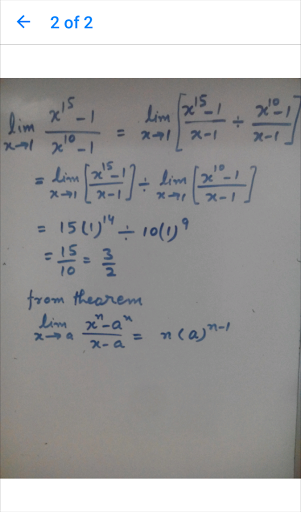 2 of 2
lim x→1 (x^15 - 1)/(x^10 - 1) = lim x→1 [(x^15 - 1)/(x - 1) ÷ (x^10 - 1)/(x - 1)]
= lim x→1 [(x^15 - 1)/(x - 1)] ÷ lim x→1 [(x^10 - 1)/(x - 1)]
= 15(1)^14 ÷ 10(1)^9
= 15/10 = 3/2
from thearem
lim x→a (x^n - a^n)/(x - a) = n(a)^(n-1)